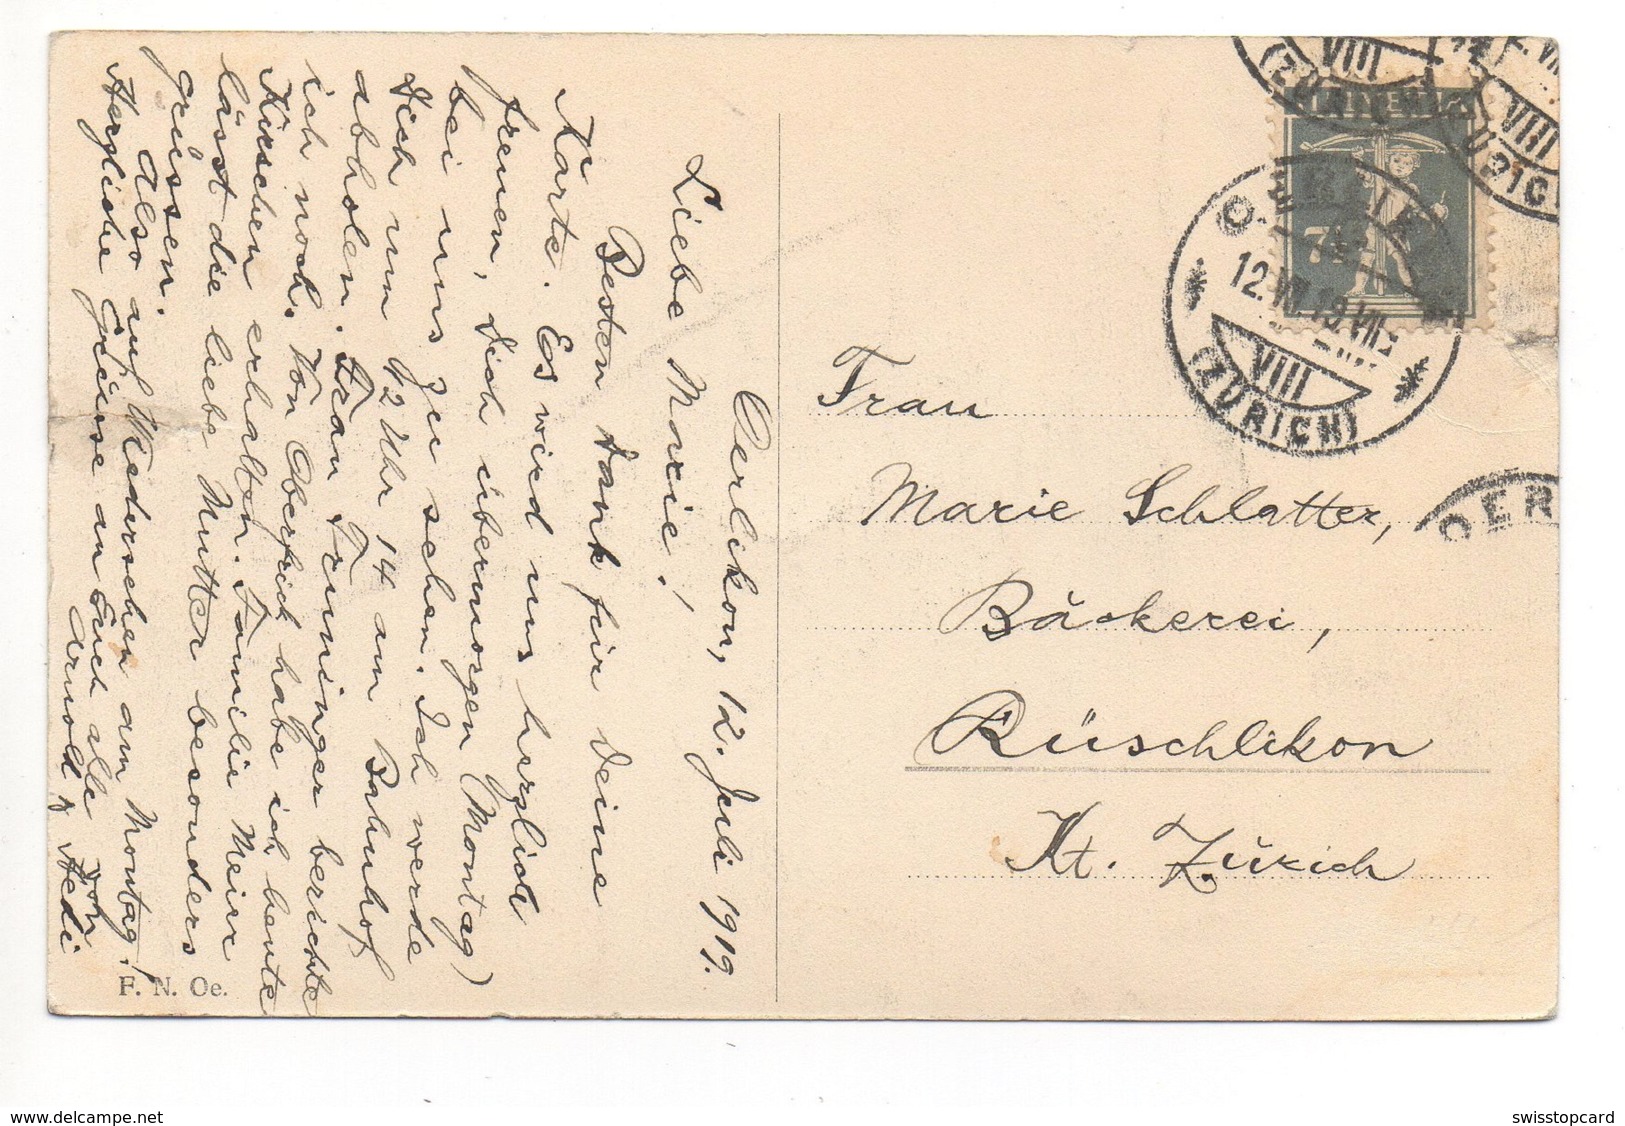 Oerlikon, 12. Juli 1919.
Liebe Marie!
Besten Dank für Deine
Karte. Es wird uns herzlich
freuen, Dich übermorgen (Montag)
bei uns zu sehen. Ich werde
Dich um 42 Uhr 14 am Bahnhof
abholen. Frau Freminger berichte
ich noch. Von Oberfrick habe ich heute
Kirschen erhalten. Familie Meier
lässt die liebe Mutter besonders
grüssen.
Also auf Wiedersehen am Montag!
Herzliche Grüsse an Euch alle von
Arnold & Hedi
F. N. Oe.
Frau
Marie Schlatter,
Bäckerei,
Rüschlikon
Kt. Zürich
7½
12.VII.19.VIII
VIII
(ZÜRICH)
VIII
(ZÜRICH)
VIII
OER
delcampe.net
swisstopcard